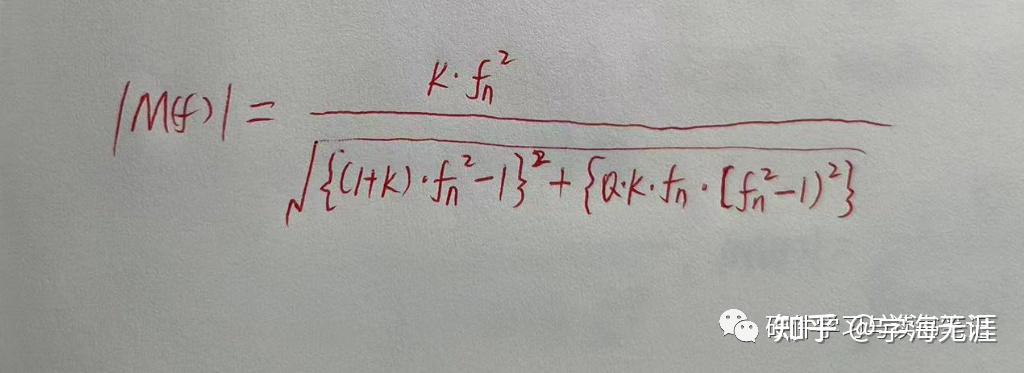 |M(f)| = K·fn² / √({(1+K)·fn²-1}² + {Q·K·fn·[fn²-1)²})
知乎 @学海无涯